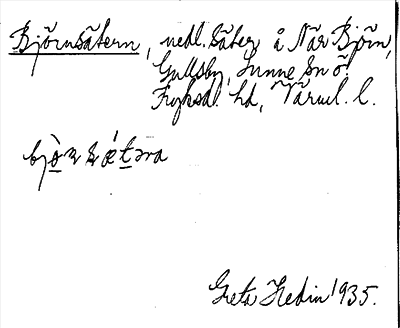 Björnsätern, nedl. säter å När Björn,
Gullsby, Sunne sn ö.
Fryksd. hd, Värml. l.
Greta Hedin 1935.